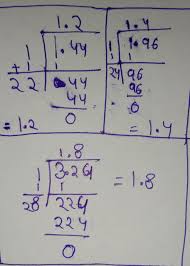 1.2
1 1.44
+1 1
22 044
44
0
= 1.2
1.4
1 1.96
1 1
24 96
96
0
= 1.4
1.8
1 3.24
1 1
28 224
224
0
= 1.8